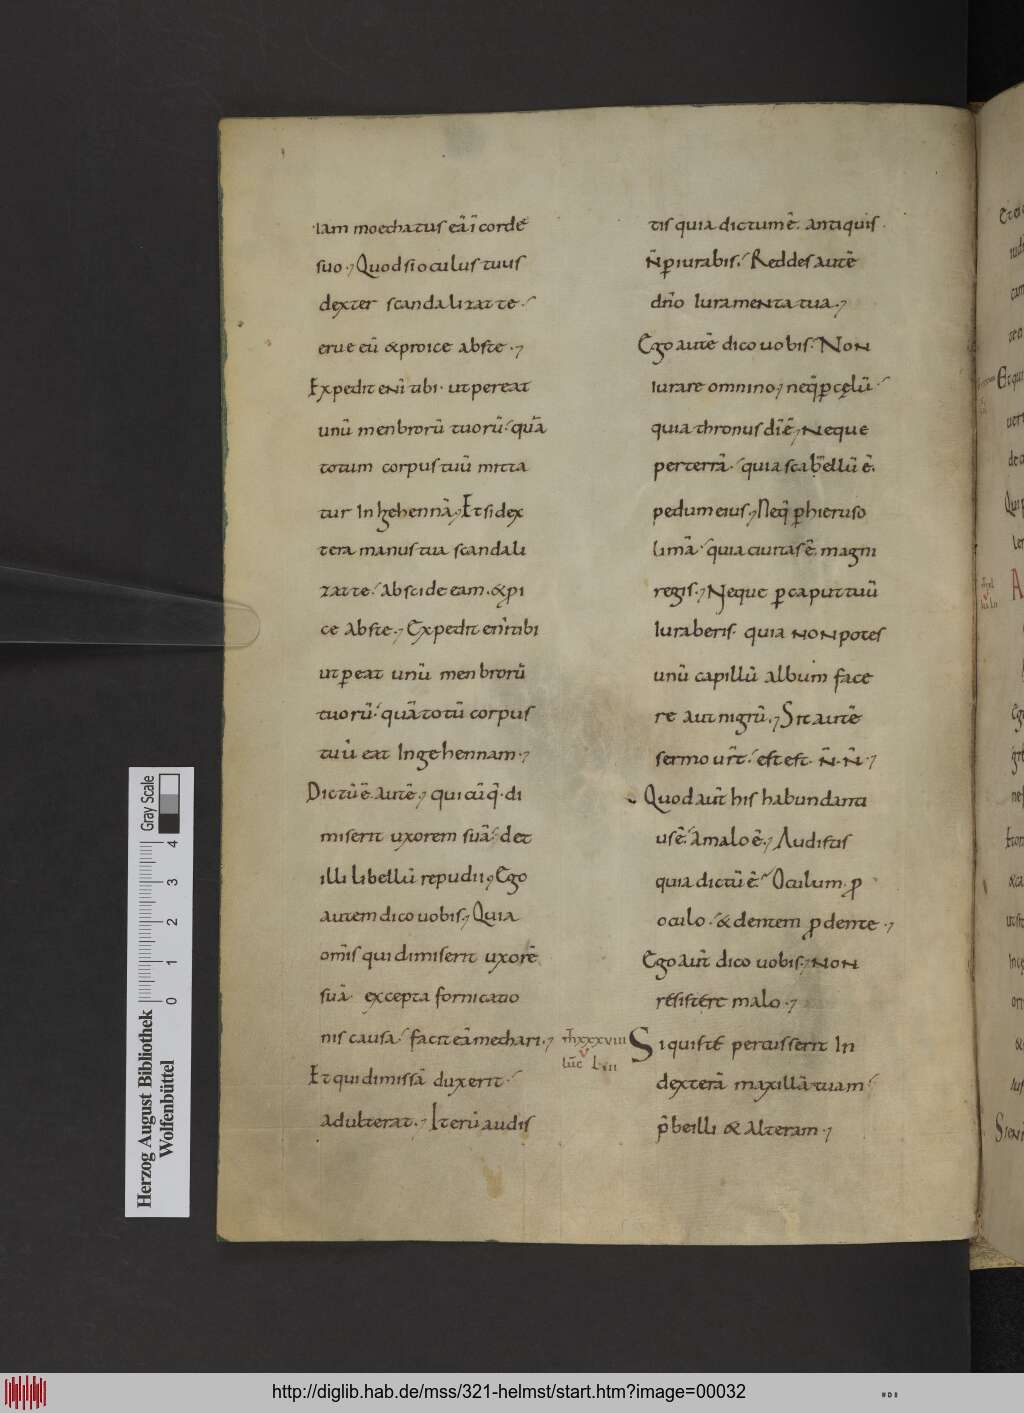 iam moechatus eā ī corde
suo. Quod si oculus tuus
dexter scandalizat te.
erue eū & proice abs te.
Expedit eni tibi. ut pereat
unū menbrorū tuorū. quā
totum corpus tuū mitta
tur in gehennā. Et si dex
tera manus tua scandali
zat te. abscide eam. & pi
ce abs te. Expedit enī tibi
ut ꝑeat unū menbrorū
tuorū. quā totū corpus
tuū eat in gehennam.
Dictū ē autē. qui cūq̄. di
miserit uxorem suā. det
illi libellū repudii. Ego
autem dico uobis. Quia
om̄is qui dimiserit uxorē
suā. excepta fornicatio
nis causa. facit eā mechari.
Et qui dimissā duxerit.
adulterat. Iterū audis
tis quia dictum ē. antiquis.
N̄ ꝑiurabis. Reddes autē
dn̄o iuramenta tua.
Ego autē dico uobis. Non
iurare omnino. neq̄ ꝑ cęlū.
quia thronus dī ē. Neque
per terrā. quia scabellū ē.
pedum eius. Neq̄ ꝑ hieruso
limā. quia ciuitas ē. magni
regis. Neque ꝑ caput tuū
iuraberis. quia non potes
unū capillū album face
re aut nigrū. Sit autē
sermo ur̄t. est est. N̄. N̄.
Quod aut̄ his habundanti
us ē. a malo ē. Audistis
quia dictū ē. Oculum. ꝓ
oculo. & dentem ꝓ dente.
Ego aut̄ dico uobis. non
resistere malo.
m̄ xxxviii
luc̄ Lvii
Si quis te percusserit in
dexterā maxillā tuam.
p̄be illi & alteram.
Herzog August Bibliothek
Wolfenbüttel
0 1 2 3 4
Gray Scale
http://diglib.hab.de/mss/321-helmst/start.htm?image=00032